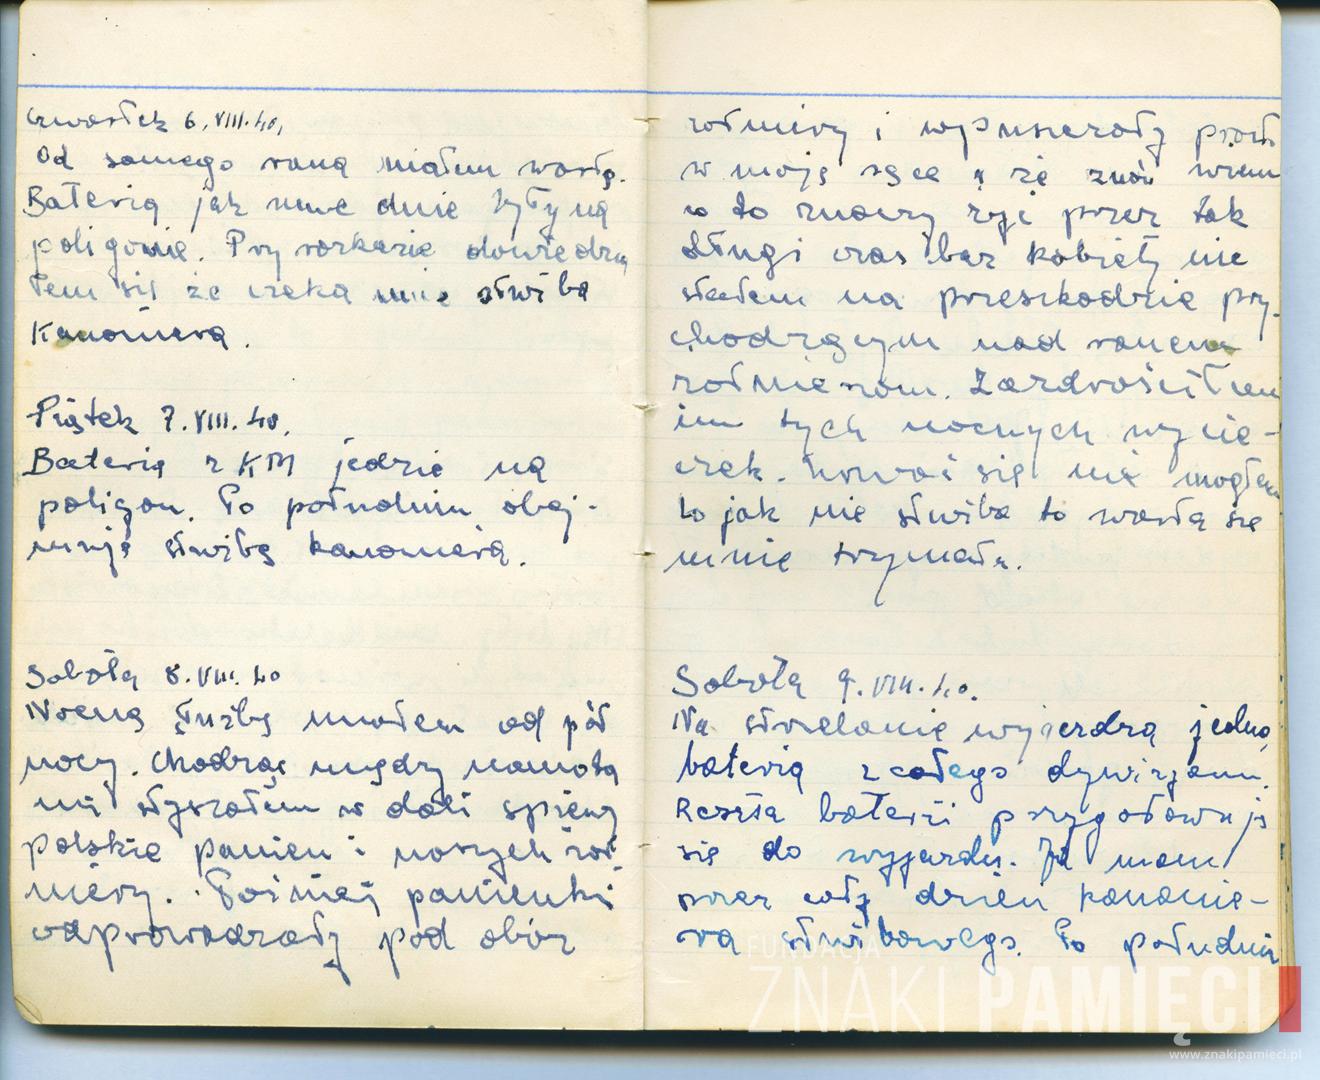 Czwartek 6.VIII.40.
Od samego rana miałem wartę.
Bateria jak inne dnie były na
poligonie. Przy rozkazie dowiedzia
łem się że czeka mnie służba
Kanoniera.
Piątek 7.VIII.40.
Bateria z KM jedzie na
poligon. Po południu obej-
muję służbę kanoniera.
Sobota 8.VIII.40
Nocną służbę miałem od pół
nocy. Chodząc między namiota
mi słyszałem w dali śpiewy
polskie panien i naszych żoł
nierzy. Później panienki
odprowadzały pod obóz
żołnierzy i wypuszczały
w moje ręce
to to znaczy żyć przez tak
długi czas bez kobiety nie
stałem na przeszkodzie przy-
chodzącym nad ranem
żołnierzom. Zazdrościłem
im tych nocnych wycie-
czek. się nie mogłem
bo jak nie służba to warta się
mnie trzymała.
Sobota 9.VIII.40.
Na strzelanie wyjeżdża jedna
bateria z całego dywizjonu.
Reszta baterii przygotowuje
się do wyjazdu. Ja mam
przez cały dzień kanonie-
ra służbowego. Po południu
FUNDACJA
ZNAKI PAMIĘCI
www.znakipamieci.pl